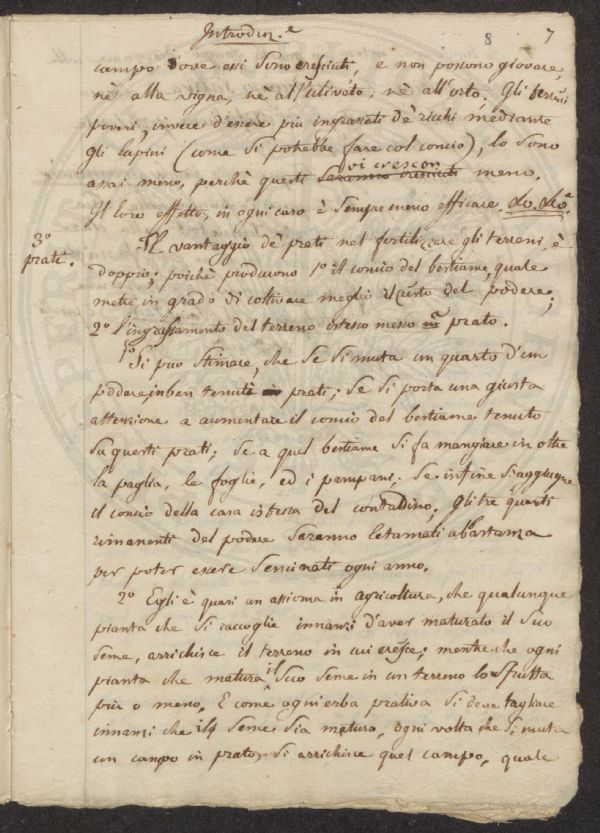 Introduz.e
8 7
campo dove essi sono cresciuti, e non possono giovare,
nè alla vigna, nè all'uliveto, nè all'orto. Gli terreni
poveri, invece d'essere più ingrassati de' ricchi mediante
gli lupini (come si potrebbe fare col concio), lo sono
assai meno, perchè questi saranno cresciuti vi crescon meno.
Il loro effetto, in ogni caso è sempre meno efficace.
3º
prati.
Il vantaggio de' prati nel fertilizzare gli terreni, è
doppio; poichè producono 1º il concio del bestiame, quale
mette in grado di coltivare meglio il resto del podere;
2º l'ingrassamento del terreno istesso messo in prato.
1º Si può stimare, che se si muta un quarto d'un
podere in ben tenuti prati; se si porta una giusta
attenzione a aumentare il concio del bestiame tenuto
su questi prati; se a quel bestiame si fa mangiare in oltre
la paglia, le foglie, ed i pampani; se infine si aggiugne
il concio della casa istessa del contadino; Gli tre quarti
rimanenti del podere saranno letamati abbastanza
per poter essere seminati ogni anno.
2º Egli è quasi un assioma in agricoltura, che qualunque
pianta che si raccoglie innanzi d'aver maturato il suo
seme, arrichisce il terreno in cui cresce; mentre che ogni
pianta che matura il suo seme in un terreno lo sfrutta
più o meno. E come ogni erba prativa si deve tagliare
innanzi che il seme sia maturo, ogni volta che si muta
un campo in prato, si arrichisce quel campo, quale